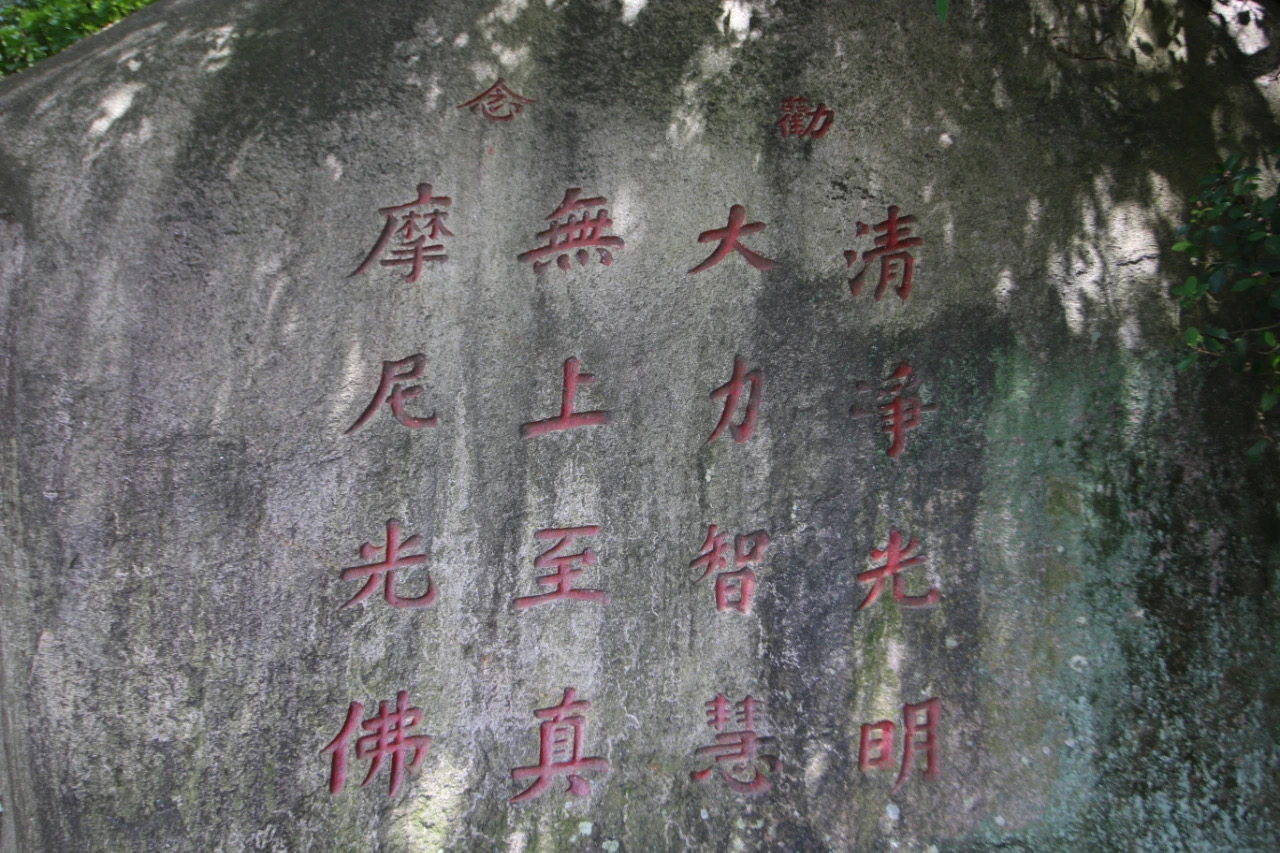 勸念
清爭光明
大力智慧
無上至真
摩尼光佛